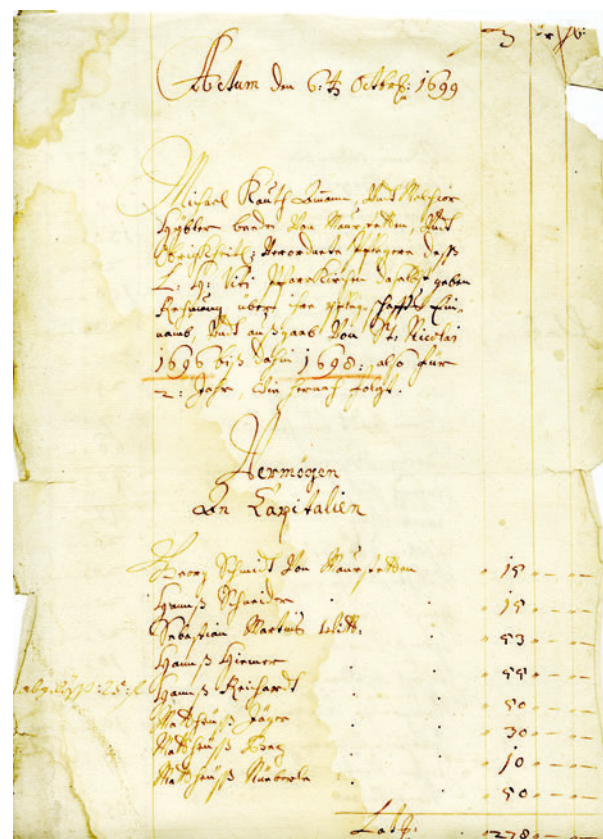 Actum den 6: t Octobr: 1699
Michael Rauth Amann, Vndt Melchior
Hybler beede Von Maurstetten, Vndt
Obrigkheitl: Verordnete Pflegere deß
L: H: Viti Pfarrkirchen daselbst geben
Rechnung über ihre pflegschaffts Ein-
namb, Vndt außgaab Von St. Nicolai
1696 biß dahin 1698: also für
2: Jahr, wie hernach folgt.
Vermögen
An Capitalien
Georg Schmidt Von Maurstetten 15
Hannß Schneider 15
Sebastian Martins 53
Hannß Hiemer 55
Hannß Reichardt 50
Matheuß Jäger 30
Matheuß 10
Matheuß 50
Latg: 278